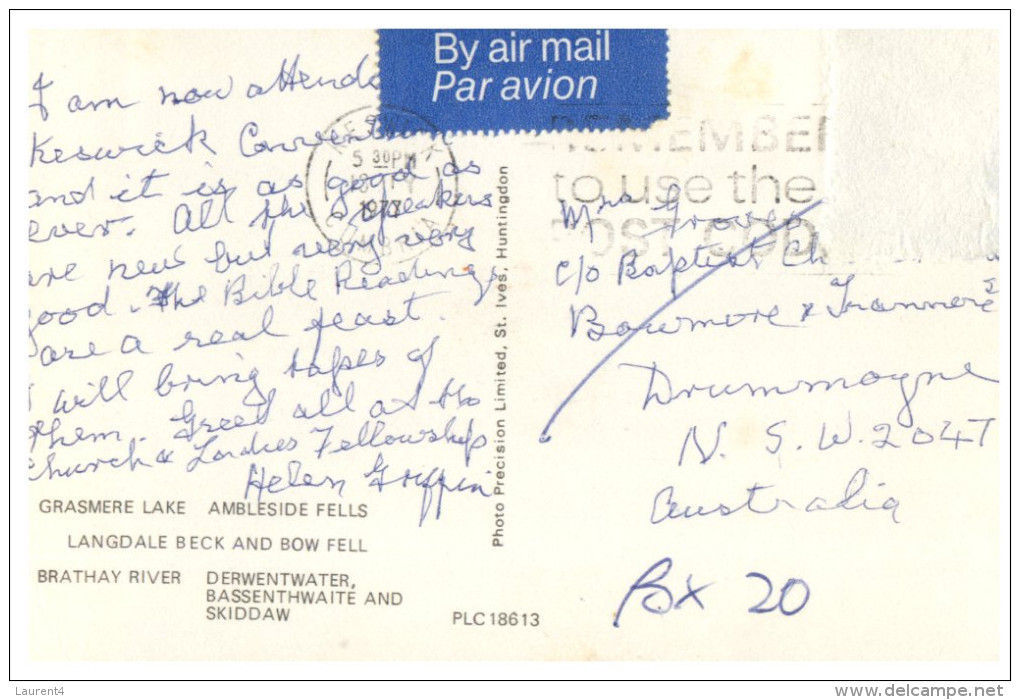 By air mail
Par avion
I am now attend
Keswick Convention
and it is as good as
ever. All the speakers
are new but very very
good. The Bible Readings
are a real feast.
I will bring tapes of
them. Greet all at the
church & Ladies Fellowship
Helen Griffin
GRASMERE LAKE AMBLESIDE FELLS
LANGDALE BECK AND BOW FELL
BRATHAY RIVER DERWENTWATER,
BASSENTHWAITE AND
SKIDDAW
PLC18613
Photo Precision Limited, St. Ives, Huntingdon
5 30PM
197
CUMBRIA
REMEMBER
to use the
POST COD
Mrs Groves
c/o Baptist Ch
Bowmore & Tranmere
Drummoyne
N. S. W. 2047
Australia
Bx 20
Laurent4
www.delcampe.net